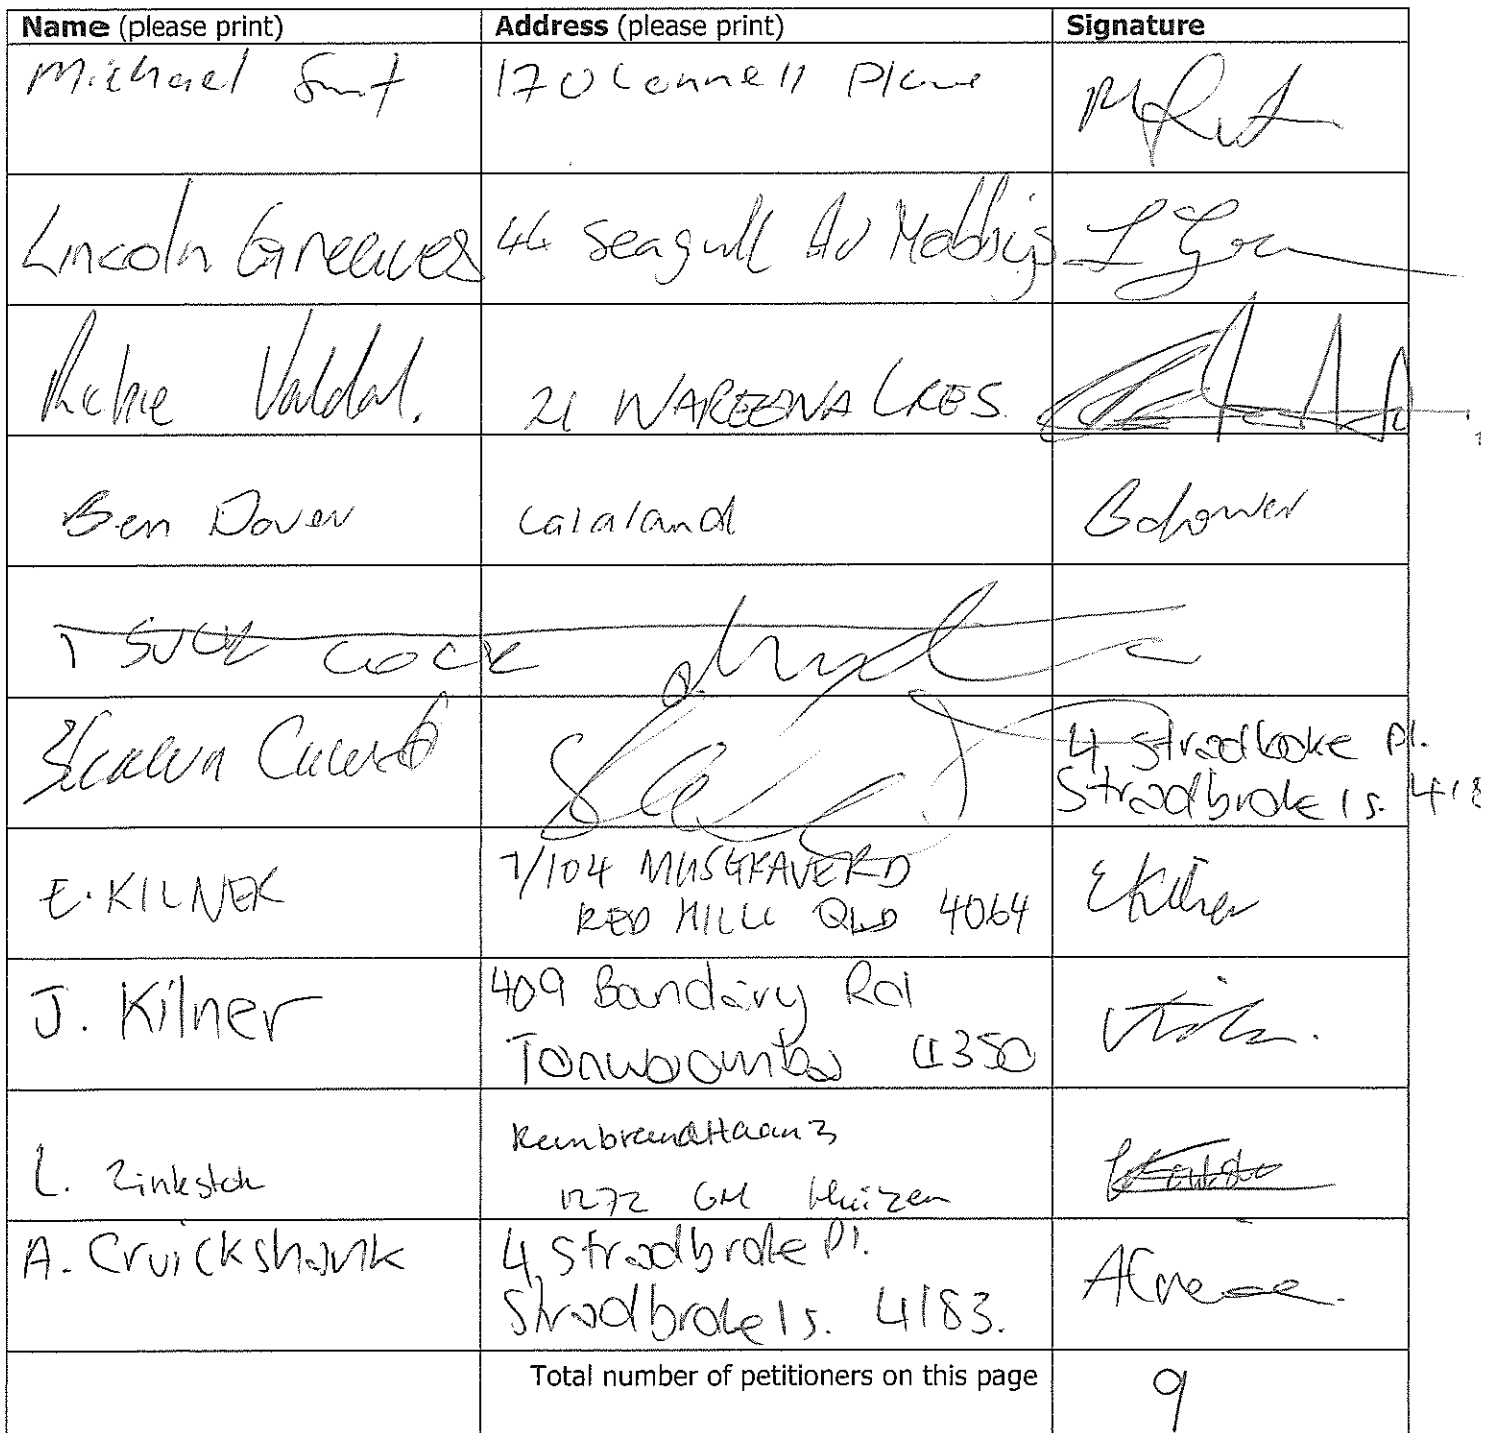 Name (please print) Address (please print) Signature
Michael Smit 17 O'Connell Place
Lincoln Greeaves 44 Seagull Av Mobbigs
Richie Valdal. 21 WAREEENA CRES.
Ben Dover Lalaland BDover
I SUCK COCK
4 Stradbroke Pl.
Stradbroke Is. 418
E. KILNER 7/104 MUSGRAVE RD
RED HILL QLD 4064 EKilner
J. Kilner 409 Boundary Rd
Toowoomba 4350
L. Zinkstok Rembrandtlaan 3
1272 GM Huizen
A. Cruickshank 4 Stradbroke Pl.
Stradbroke Is. 4183.
Total number of petitioners on this page 9